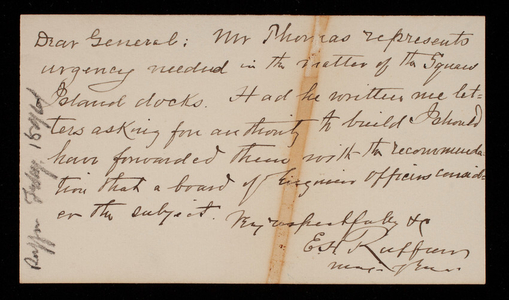 Dear General: Mr Thomas represents
urgency needed in the matter of the Squaw
Island docks. Had he written me let-
ters asking for authority to build I should
have forwarded them with the recommenda-
tion that a board of Engineer officers consid-
er the subject.
Very respectfully &c
E. H. Ruffner
Maj. of Engrs.
Ruffner Feby